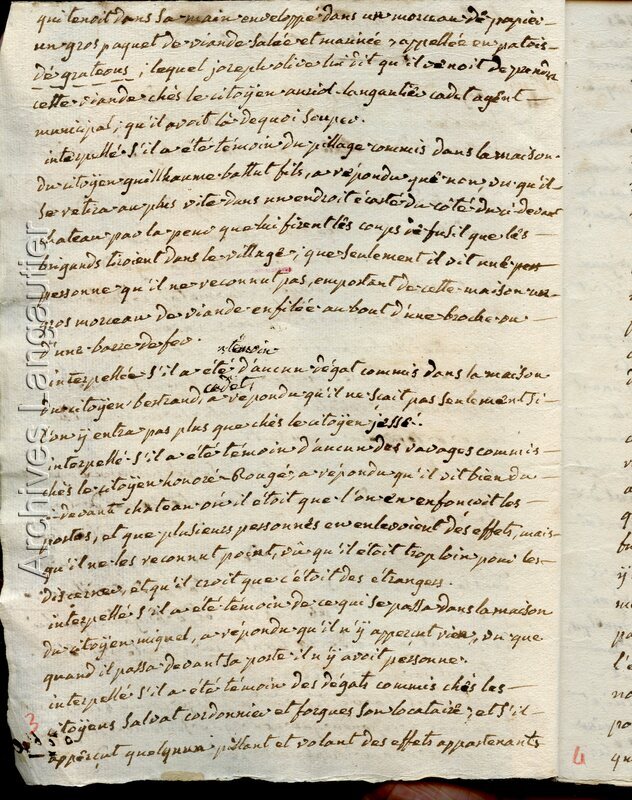 qui tenoit dans sa main enveloppé dans un morceau de papier
un gros paquet de viande salée et marinée appellée en patois
dé grateons, lequel joseph olive lui dit qu'il venoit de prendre
cette viande chès le citoyen auriol languetier cadet agent
municipal, qu'il avoit là dequoi souper.
interpellé s'il a été témoin du pillage commis dans la maison
du citoyen guilhaume battut fils, a répondu que non, vu qu'il
se retira au plus vite dans un endroit écarté du côté du ci devant
chateau par la peur que lui firent lès coups de fusil que lès
brigands tiroient dans le village; que seulement il vit une pers
personne qu'il ne reconnut pas, emportant de cette maison un
gros morceau de viande enfilée au bout d'une broche ou
d'une barre de fer.
témoin
interpellé s'il a été d'aucun dégat commis dans la maison
cadet
du citoyen bertrand, a répondu qu'il ne scait pas seulement si
l'on y entra pas plus que chès le citoyen jessé.
interpellé s'il a été témoin d'aucun des ravages commis
chès le citoyen honoré Rougé, a répondu qu'il vit bien du
ci devant chateau où il étoit que l'on en enfonçoit les
portes, et que plusieurs personnes en enlevoient dés effets, mais
qu'il ne les reconnut point, vû qu'il étoit trop loin pour les
discerner, et qu'il croit que c'étoit des étrangers.
interpellé s'il a été témoin de ce qui se passa dans la maison
du citoyen miquel, a répondu qu'il n'y apperçut rien, vu que
quand il passa devant sa porte il n'y avoit personne.
interpellé s'il a été témoin des dégats commis chès les
citoyens salvat cordonnier et forques son locataire, et s'il
apperçut quelqun pillant et volant des effets appartenants
3
4
Archives Langautier